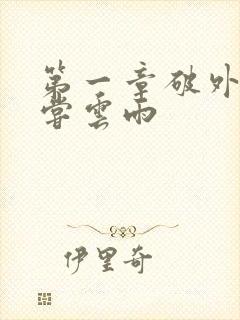 第一章破外
嘗雲雨
伊里奇